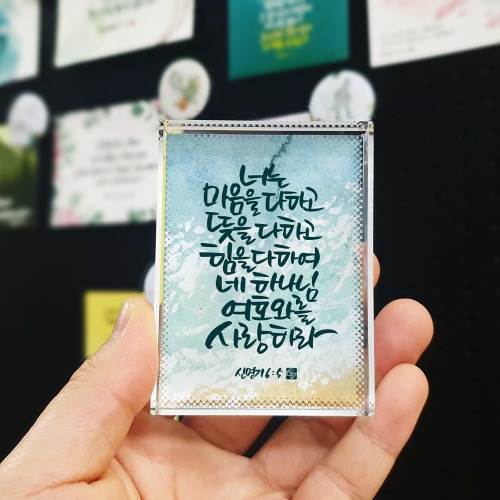 너는
마음을 다하고
뜻을 다하고
힘을 다하여
네 하나님
여호와를
사랑하라
신명기 6:5